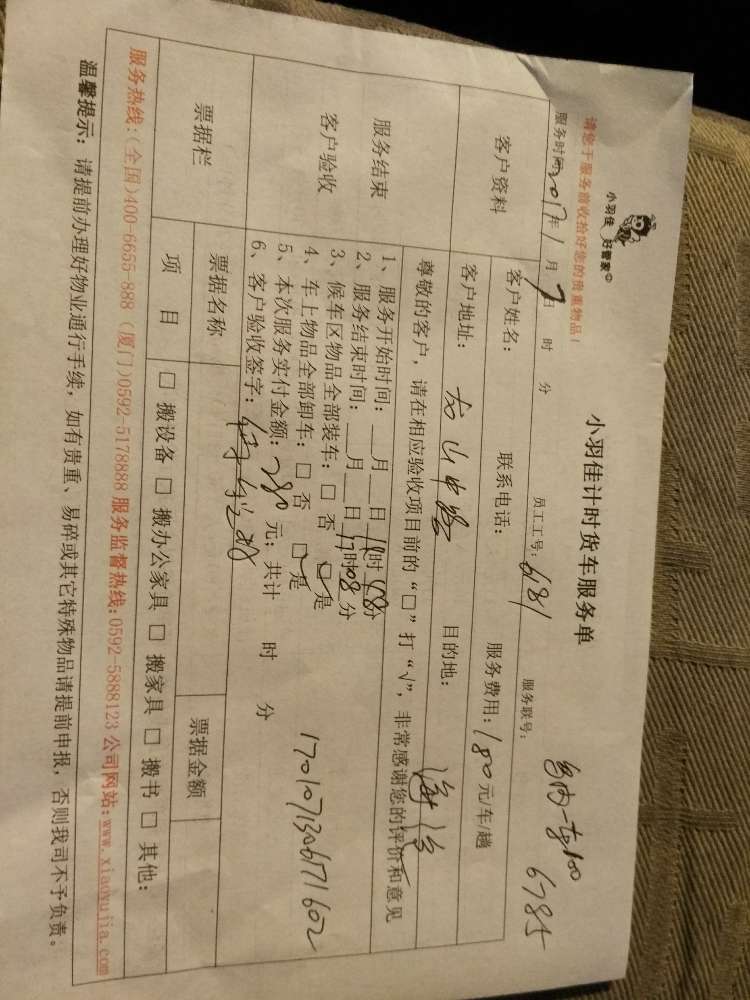 小羽佳 好管家
请您于服务前收拾好您的贵重物品！
小羽佳计时货车服务单
服务时间2017年1月7日 时 分 员工工号: 6181 服务联号: 6785
客户资料
客户姓名: 联系电话: 服务费用: 180元/车/趟
客户地址: 龙山中路 目的地: 海沧
服务结束
客户验收
尊敬的客户，请在相应验收项目前的“□”打“√”，非常感谢您的评价和意见
1、服务开始时间: 月 日 时 分
2、服务结束时间: 月 日17时08分
3、候车区物品全部装车: □ 否 □ 是
4、车上物品全部卸车: □ 否 □ 是
5、本次服务实付金额: 280元; 共计 时 分
6、客户验收签字:
1701071306171602
票据栏 票据名称 票据金额
项 目 □ 搬设备 □ 搬办公家具 □ 搬家具 □ 搬书 □ 其他:
服务热线:(全国)400-6655-888 (厦门)0592-5178888 服务监督热线:0592-5888123 公司网站:www.xiaoyujia.com
温馨提示: 请提前办理好物业通行手续，如有贵重、易碎或其它特殊物品请提前申报，否则我司不予负责。